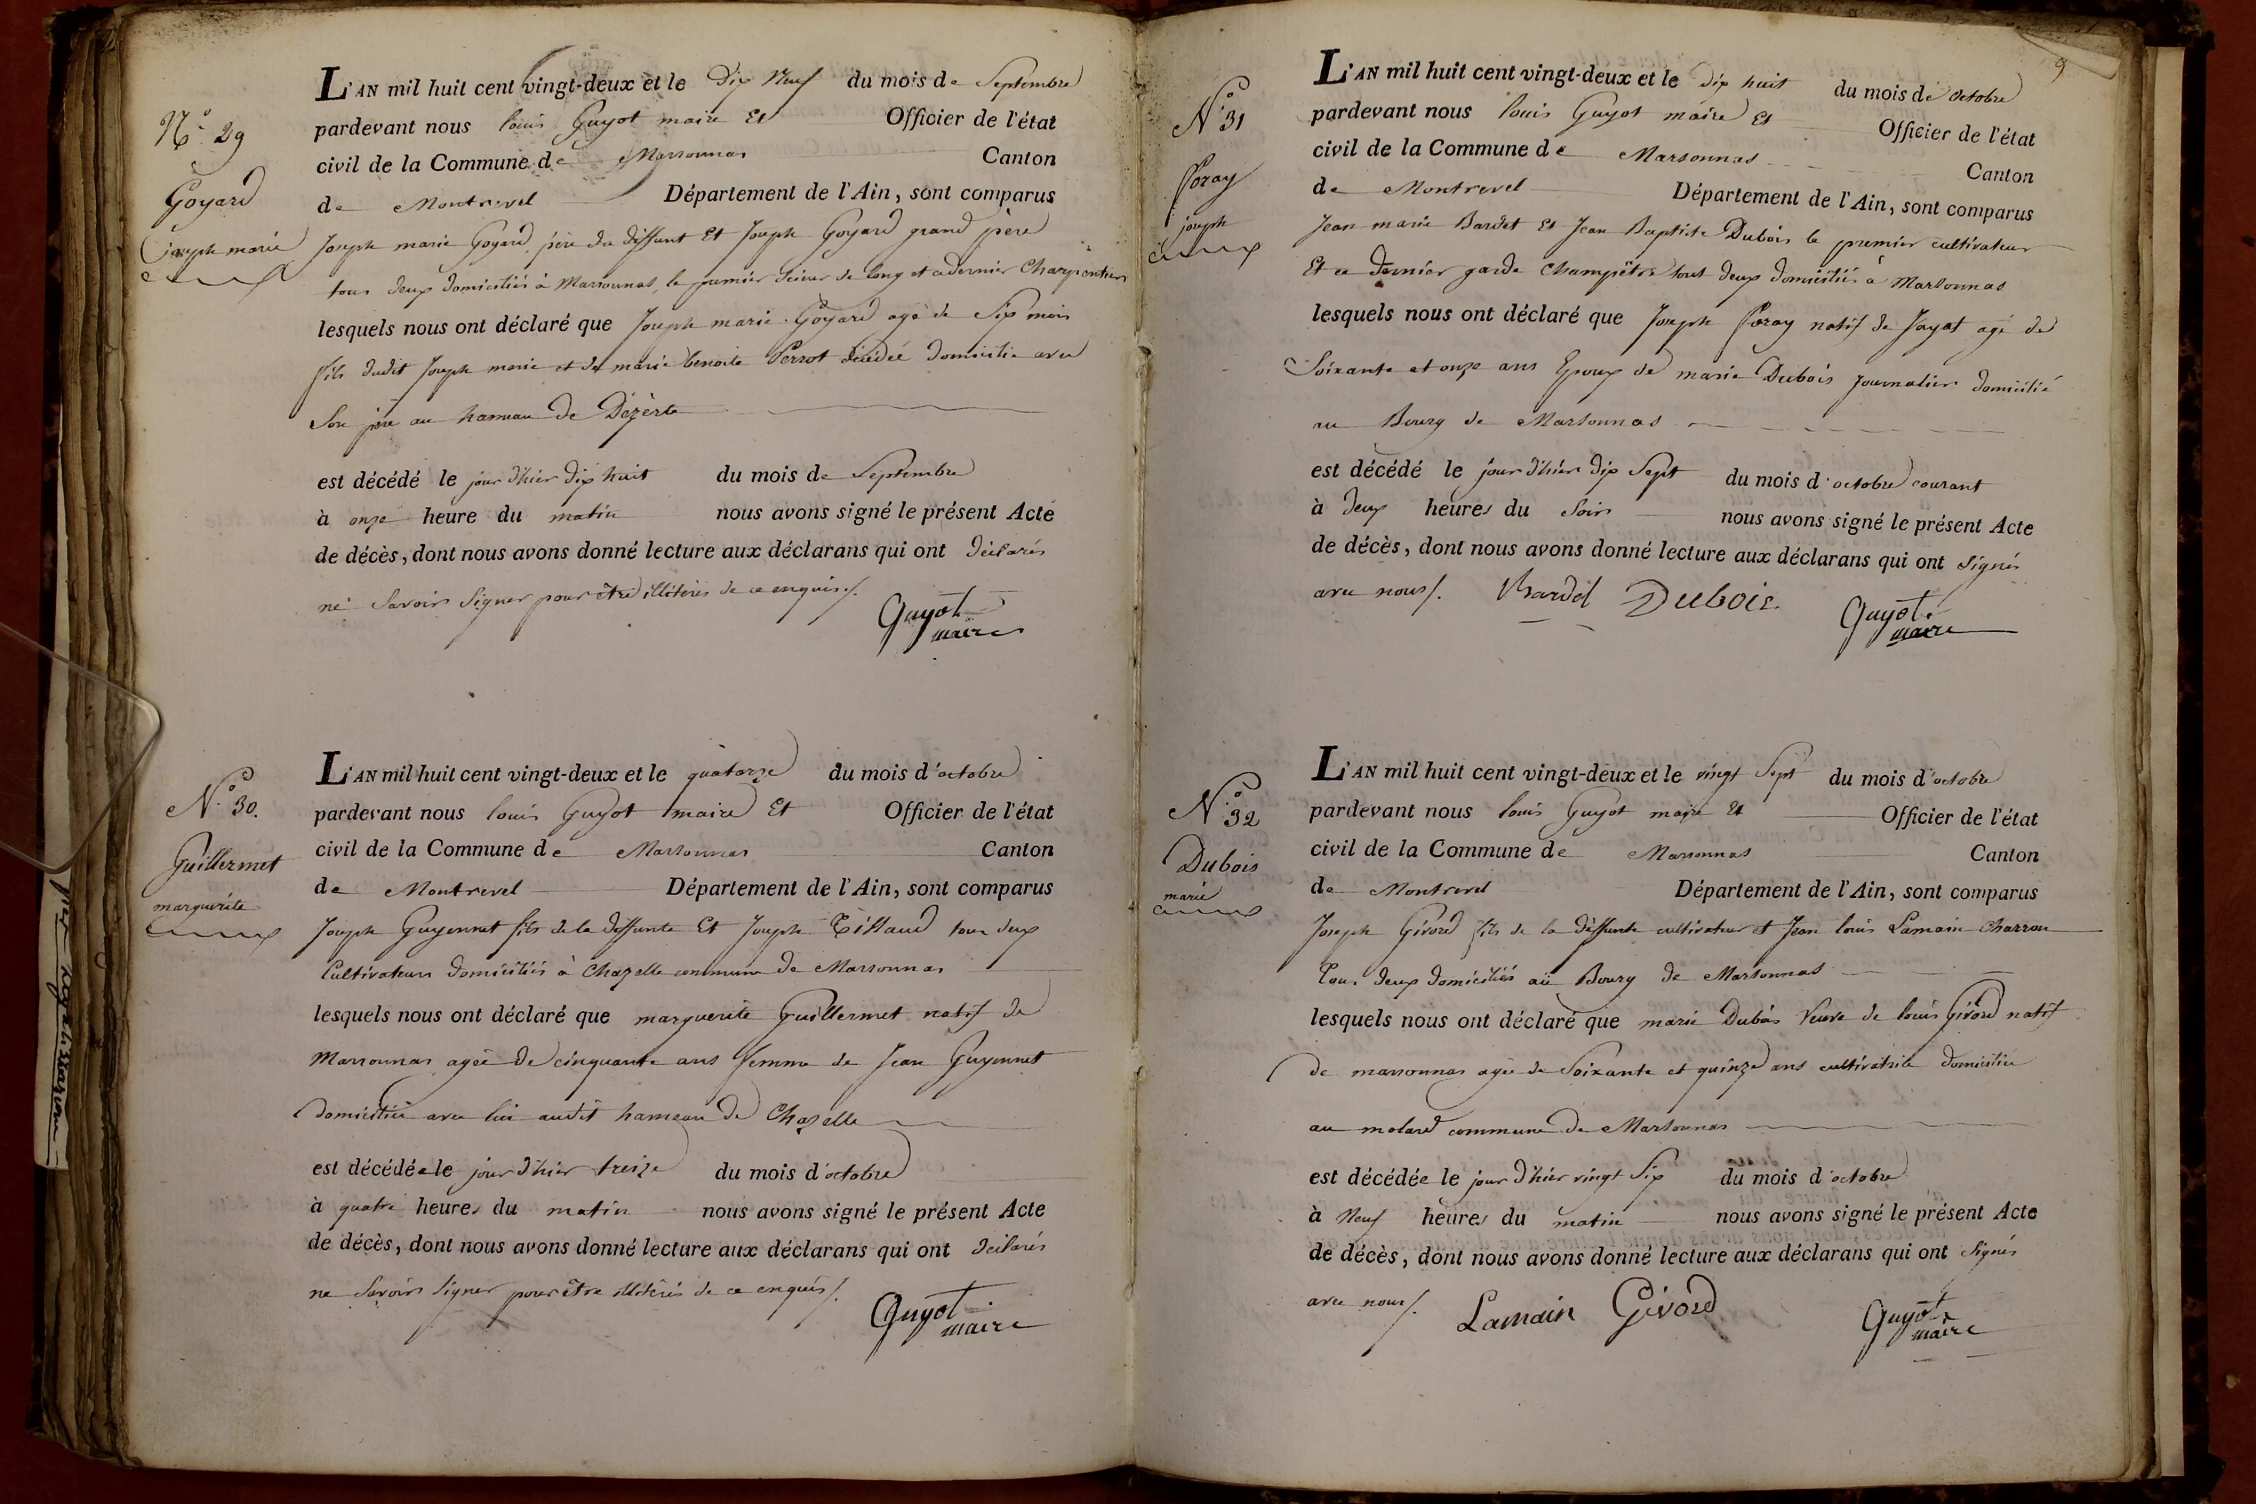 N.° 29
Goyard
joseph marie
L'AN mil huit cent vingt-deux et le Dix Neuf du mois de Septembre
pardevant nous louis Guyot maire Et Officier de l'état
civil de la Commune de Marsonnas Canton
de Montrevel Département de l'Ain, sont comparus
Joseph marie Goyard père du deffunt Et Joseph Goyard grand père
tous deux domiciliés à Marsonnas, le premier scieur de long et ce dernier Charpentier
lesquels nous ont déclaré que Joseph marie Goyard agé de Six mois
fils dudit Joseph marie et de marie benoite Perrot décédée domicilié avec
Son père au hameau de Dézerte
est décédé le jour d'hier dix huit du mois de Septembre
à onze heure du matin nous avons signé le présent Acte
de décès, dont nous avons donné lecture aux déclarans qui ont déclarés
ne Savoir Signer pour être illiterés de ce enquis/.
Guyot
maire
N.° 30.
Guillermet
marguerite
L'AN mil huit cent vingt-deux et le quatorze du mois d'octobre
pardevant nous louis Guyot maire Et Officier de l'état
civil de la Commune de Marsonnas Canton
de Montrevel Département de l'Ain, sont comparus
Joseph Guyennet fils de la deffunte Et Joseph Tillaud tous deux
Cultivateurs domiciliés à Chazelle commune de Marsonnas
lesquels nous ont déclaré que marguerite Guillermet natif de
Marsonnas agée de cinquante ans femme de Jean Guyennet
Domiciliée avec lui audit hameau de Chazelle
est décédée le jour d'hier treize du mois d'octobre
à quatre heures du matin nous avons signé le présent Acte
de décès, dont nous avons donné lecture aux déclarans qui ont déclarés
ne Savoir Signer pour être illiterés de ce enquis/.
Guyot
maire
9
N.° 31
Poray
joseph
L'AN mil huit cent vingt-deux et le dix huit du mois de octobre
pardevant nous louis Guyot maire Et Officier de l'état
civil de la Commune de Marsonnas Canton
de Montrevel Département de l'Ain, sont comparus
Jean marie Bardet Et Jean Baptiste Dubois le premier cultivateur
Et ce dernier garde Champêtre tout deux domiciliés à Marsonnas
lesquels nous ont déclaré que Joseph Poray natif de Jayat agé de
Soixante et onze ans Epoux de marie Dubois journalier domicilié
au Bourg de Marsonnas
est décédé le jour d'hier dix Sept du mois d'octobre courant
à deux heures du Soir nous avons signé le présent Acte
de décès, dont nous avons donné lecture aux déclarans qui ont Signés
avec nous/. Bardet Dubois Guyot
maire
N.° 32
Dubois
marie
L'AN mil huit cent vingt-deux et le vingt Sept du mois d'octobre
pardevant nous louis Guyot maire Et Officier de l'état
civil de la Commune de Marsonnas Canton
de Montrevel Département de l'Ain, sont comparus
Joseph Givord fils de la deffunte cultivateur et Jean louis Lamain Charron
Tous deux domiciliés au Bourg de Marsonnas
lesquels nous ont déclaré que marie Dubois Veuve de louis Givord natif
de marsonnas agée de Soixante et quinze ans cultivatrice domiciliée
au molard commune de Marsonnas
est décédée le jour d'hier vingt Six du mois d'octobre
à Neuf heures du matin nous avons signé le présent Acte
de décès, dont nous avons donné lecture aux déclarans qui ont Signés
avec nous/. Lamain Givord Guyot
maire